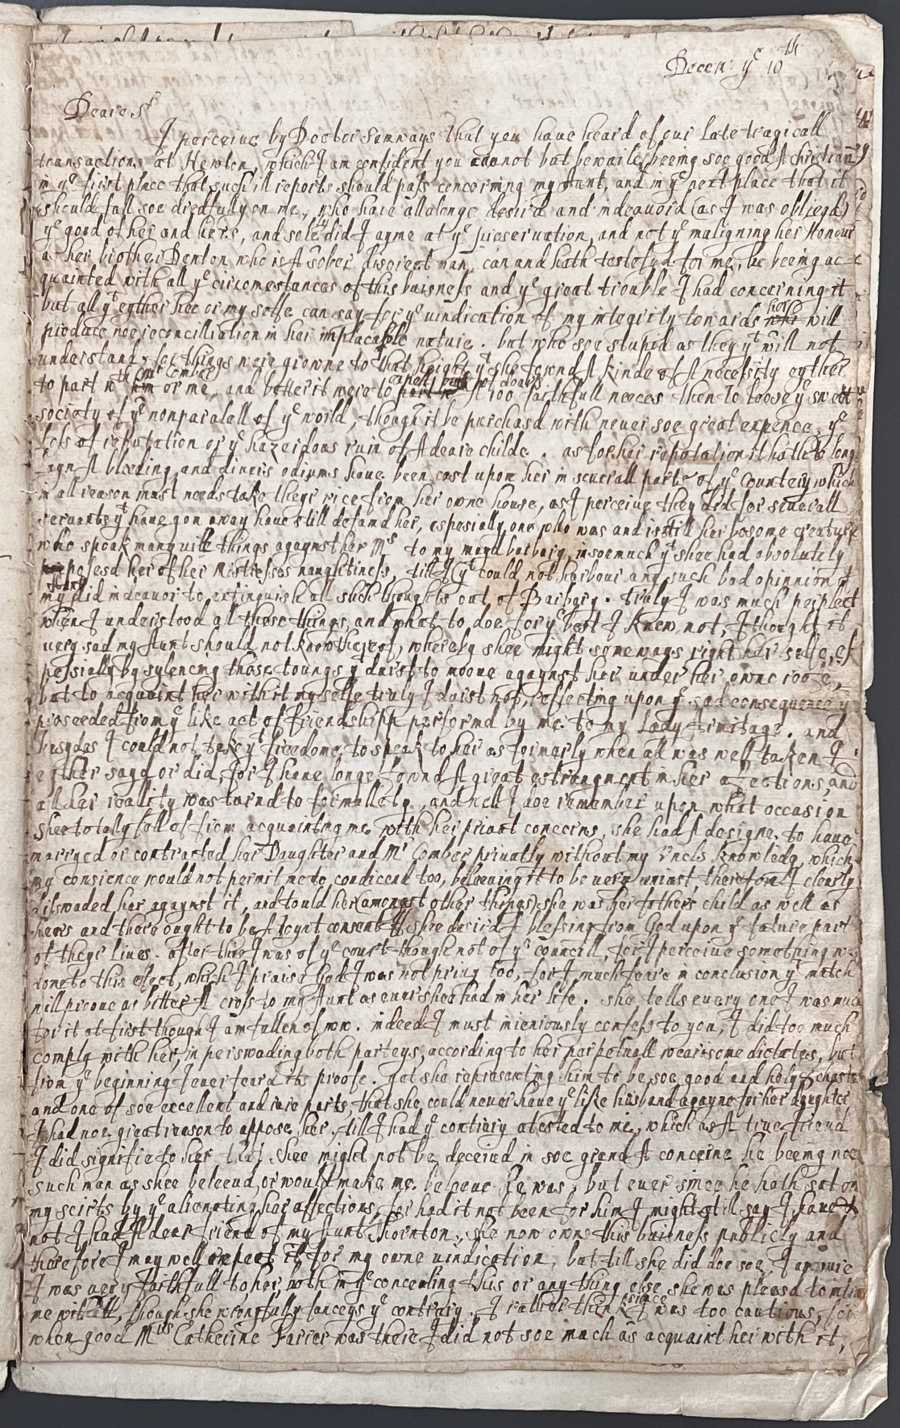 Decem: yͤ 10th
Deare Sr
I perceive by Doctor Samways that you have heard of our Late tragicall
transactions at Newton, which I am confident you cannot but bewaile, beeing soe good A christian,
in yͤ first place that such ill reports should pass concerning my Aunt, and in yͤ next place that it
should fall soe dredfully on me, who have all alonge desir'd and indeavoid (as I was obliegd)
yͤ good of her and hers, and sole did I ayme at yͤ preservation, and not yͤ maligning her Honour
as her brother Denton who is A sober discreet man, can and hath testefyd for me, he beeing ac-
quainted with all yͤ circomestances of this buisness and yͤ great trouble I had concerning it
but all yt eyther hee or my selfe can say for yͤ vindication of my integrity towards her will
produce noe reconciliation in her implacable nature. but who soe stupid as they yt will not
understand, for things were growne to that height yt she found A kinde of A necesity eyther
to part wth Mr Comber or me, and better it were to part A 100 faithfull neeces then to loose yͤ sweet
society of yͤ nonparalell of yͤ world, though it be purchasd with never soe great expence, yͤ
loss of reputation or yͤ hazerdous ruin of A deare childe. as for her reputation it hath long
layn A bleeding, and divers odiums have been cast upon her in severall parts of yͤ Countery which
in all reason must needs take theyr rice from her owne house, as I perceive they did for severall
servants yt have gon away have still defamd her, espesially one who was and is still her bosome creature
who spoak many vile things against her Mrs to my mayd barbary, insoemuch yt shee had absolutely
posesd her of her Mistresses naughtiness, till I yt could not harbour any such bad opinnion of
my Aunt did indeavor to extinguish all such thoughts out of Barbary. truly I was much perplext
when I understood al these things, and what to doe for yͤ best I knew not, I thought it
very sad my Aunt should not know thereof, whereby shee might some ways right her selfe, es
pesially by sylencing those toungs yt durst to moove against her under her owne roofe,
but to acquaint her with it my selfe truly I durst not, reflecting upon yͤ sad consequence yt
proseeded from yͤ like act of friendshipp performd by me to my Lady Armitage. and
besydes I could not take yt freedome to speak to her as formarly when all was well taken I
eyther sayd or did, for I have longe found A great estrangment in her afections, and
all her reallity was turnd to formallety, and well I doe remember upon what occasion
shee totaly fell of from acquainting me with her privat concerns, she had A designe to have
marryed or contracted her Daughter and Mr Comber privatly without my Uncls knowledg, which
my consience would not permit me to condicend too, beleeving it to be very uniust, therefore I clearly
diswaded her against it, and tould her amongst other things she was her fathers child as well as
heers and there ought to be A Joynt consent if she desird A blessing from God upon yͤ future part
of theyr lives. after this I was of yͤ court though not of yͤ councill, for I perceive something was
done to this efect, which I praise God I was not privy too, for I much feare in conclusion yͤ match
will proove as bitter A cross to my Aunt as ever shee had in her life. she tells every one I was much
for it at first though I am fallen of now. indeed I must inieniously confess to you, I did too much
comply with her, in perswading both parteys, according to her perpetuall wearisome dictates, but
from yͤ beginning I ever feard the proofe. yet she representing him to be soe good and holy & chaste
and one of soe excellent and rare parts, that she could never have yͤ like husband agayne for her daughter
I had noe great reason to oppose her, till I had yͤ contrary atested to me, which as A true friend
I did signifie to her that shee might not be deceivd in soe grand A concerne he beeing noe
such man as shee beleevd, or would make me beleeve he was, but ever since he hath sat on
my scirts by yͤ alienating her affections, for had it not been for him I might still say I have &
not I had A dear friend of my Aunt Thornton, she now owns this buisness publicly and
therefore I may well expect it for my owne vindication, but till she did doe soe, I am sure
I was very faithfull to her, both in yͤ concealing this or any thing else she was pleasd to intrust
me withall, though she wrongfully fanceys yͤ contrary. I rather think since I was too cautious, for
when good Mris Catherine Farrer was there I did not soe much as acquaint her with it,